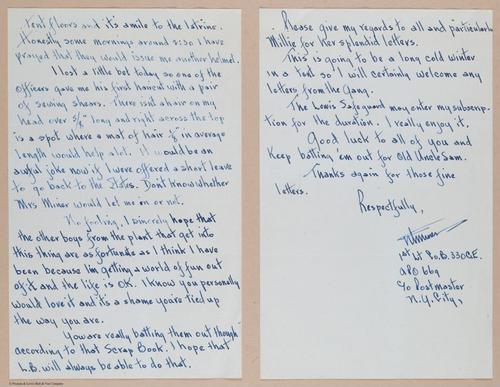 tent floors and it's a mile to the latrine.
Honestly some mornings around 5:30 I have
prayed that they would issue me another helmet.
I lost a little bet today so one of the
officers gave me his first haircut with a pair
of sewing shears. There isnt a hair on my
head over 5/8" long and right across the top
is a spot where a mat of hair 1/8" in average
length would help alot. It would be an
awful joke now if I were offered a short leave
to go back to the States. Don't know whether
Mrs Miner would let me in or not.
No fooling, I sincerely hope that
the other boys from the plant that get into
this thing are as fortunate as I think I have
been because I'm getting a world of fun out
of it and the life is OK. I know you personally
would love it and it's a shame you're tied up
the way you are.
You are really batting them out though -
according to that Scrap Book. I hope that
L.B. will always be able to do that.
© Preston & Lewis Bolt & Nut Company
Please give my regards to all and particularly
Millie for her splendid letters.
This is going to be a long cold winter
in a tent so I will certainly welcome any
letters from the gang.
The Lewis Safeguard may enter my subscrip-
tion for the duration. I really enjoy it.
Good luck to all of you and
Keep batting 'em out for Old Uncle Sam.
Thanks again for those fine
letters.
Respectfully,
1st Lt Co. B. 330 C.E.
APO 669
c/o Postmaster
N.Y. City,